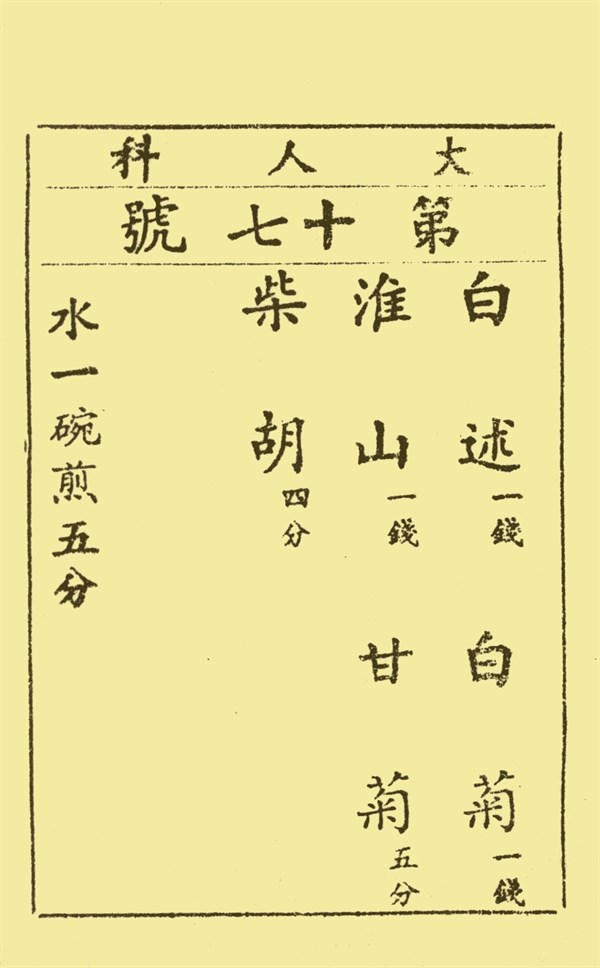 大人科
第十七號
白述一錢 白菊一錢
淮山一錢 甘菊五分
柴胡四分
水一碗煎五分